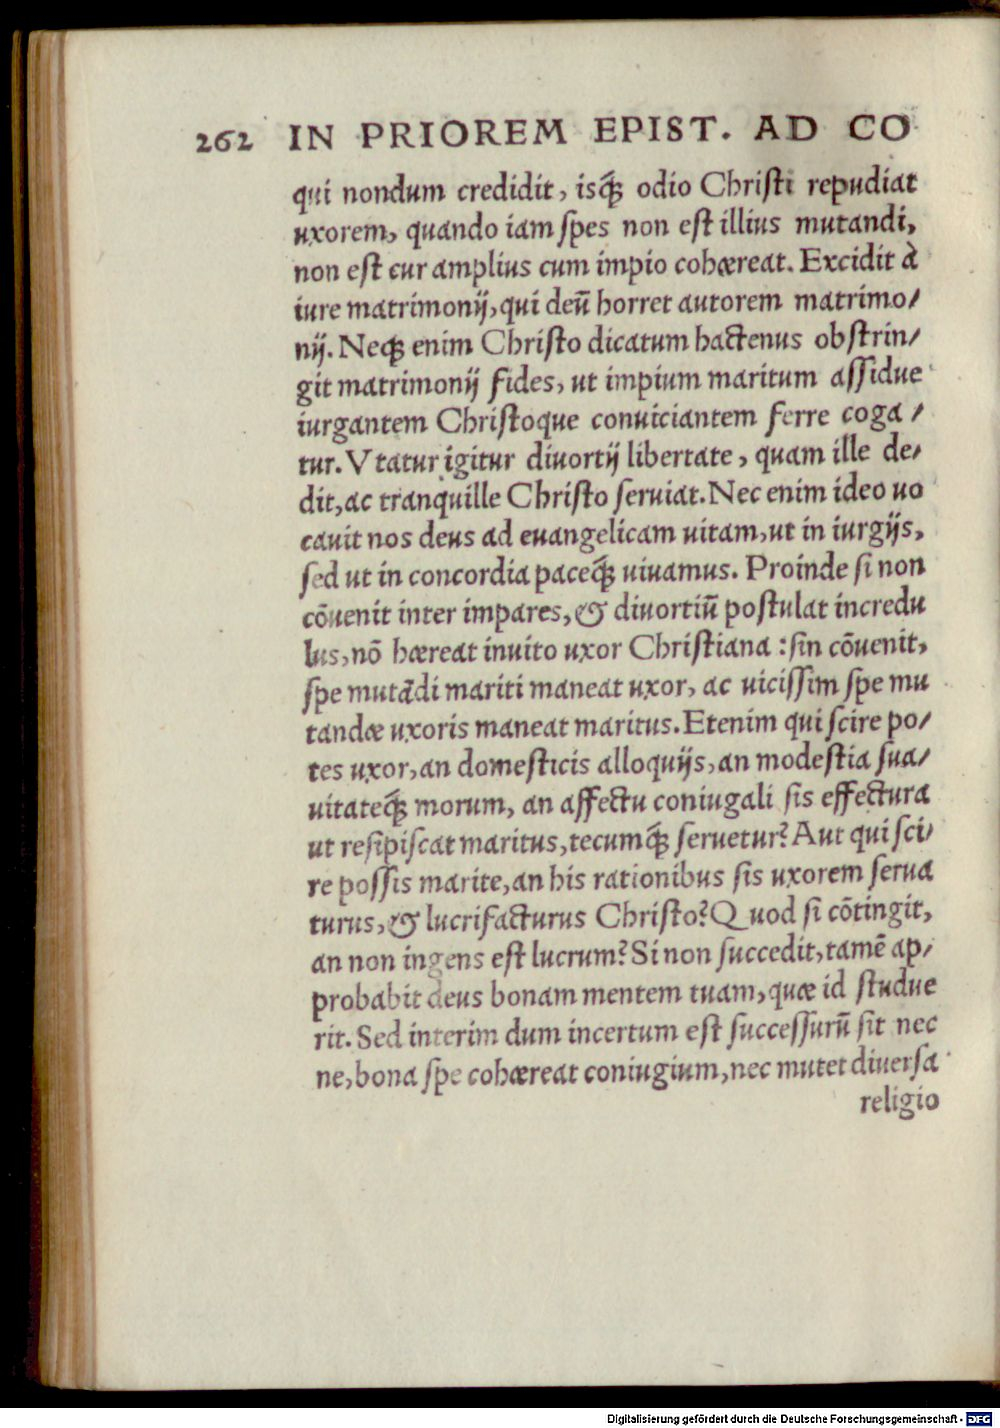 262 IN PRIOREM EPIST. AD CO
qui nondum credidit, isq́ꝫ odio Christi repudiat
uxorem, quando iam spes non est illius mutandi,
non est cur amplius cum impio cohæreat. Excidit à
iure matrimonij, qui deū horret autorem matrimo/
nij. Neqꝫ enim Christo dicatum hactenus obstrin/
git matrimonij fides, ut impium maritum assidue
iurgantem Christoque conuiciantem ferre coga /
tur. Vtatur igitur diuortij libertate, quam ille de/
dit, ac tranquille Christo seruiat. Nec enim ideo uo
cauit nos deus ad euangelicam uitam, ut in iurgijs,
sed ut in concordia paceq́ꝫ uiuamus. Proinde si non
cōuenit inter impares, & diuortiū postulat incredu
lus, nō hæreat inuito uxor Christiana : sin cōuenit,
spe mutādi mariti maneat uxor, ac uicissim spe mu
tandæ uxoris maneat maritus. Etenim qui scire po/
tes uxor, an domesticis alloquijs, an modestia sua/
uitateq́ꝫ morum, an affectu coniugali sis effectura
ut resipiscat maritus, tecumq́ꝫ seruetur? Aut qui sci/
re possis marite, an his rationibus sis uxorem serua
turus, & lucrifacturus Christo? Quod si cōtingit,
an non ingens est lucrum? Si non succedit, tamē ap/
probabit deus bonam mentem tuam, quæ id studue
rit. Sed interim dum incertum est successurū sit nec
ne, bona spe cohæreat coniugium, nec mutet diuersa
religio
Digitalisierung gefördert durch die Deutsche Forschungsgemeinschaft - DFG